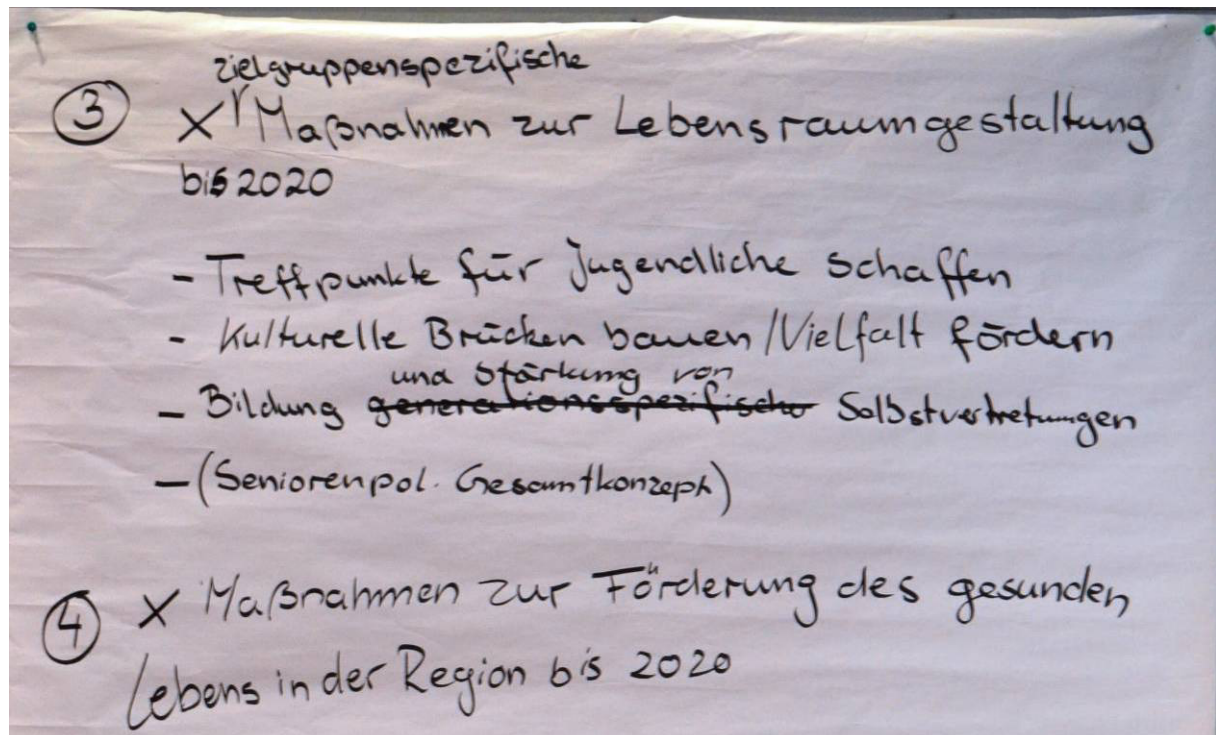 zielgruppenspezifische
③ X Maßnahmen zur Lebensraumgestaltung
bis 2020
- Treffpunkte für Jugendliche schaffen
- Kulturelle Brücken bauen / Vielfalt fördern
und Stärkung von
- Bildung generationsspezifische Selbstvertretungen
- (Seniorenpol. Gesamtkonzept)
④ X Maßnahmen zur Förderung des gesunden
Lebens in der Region bis 2020